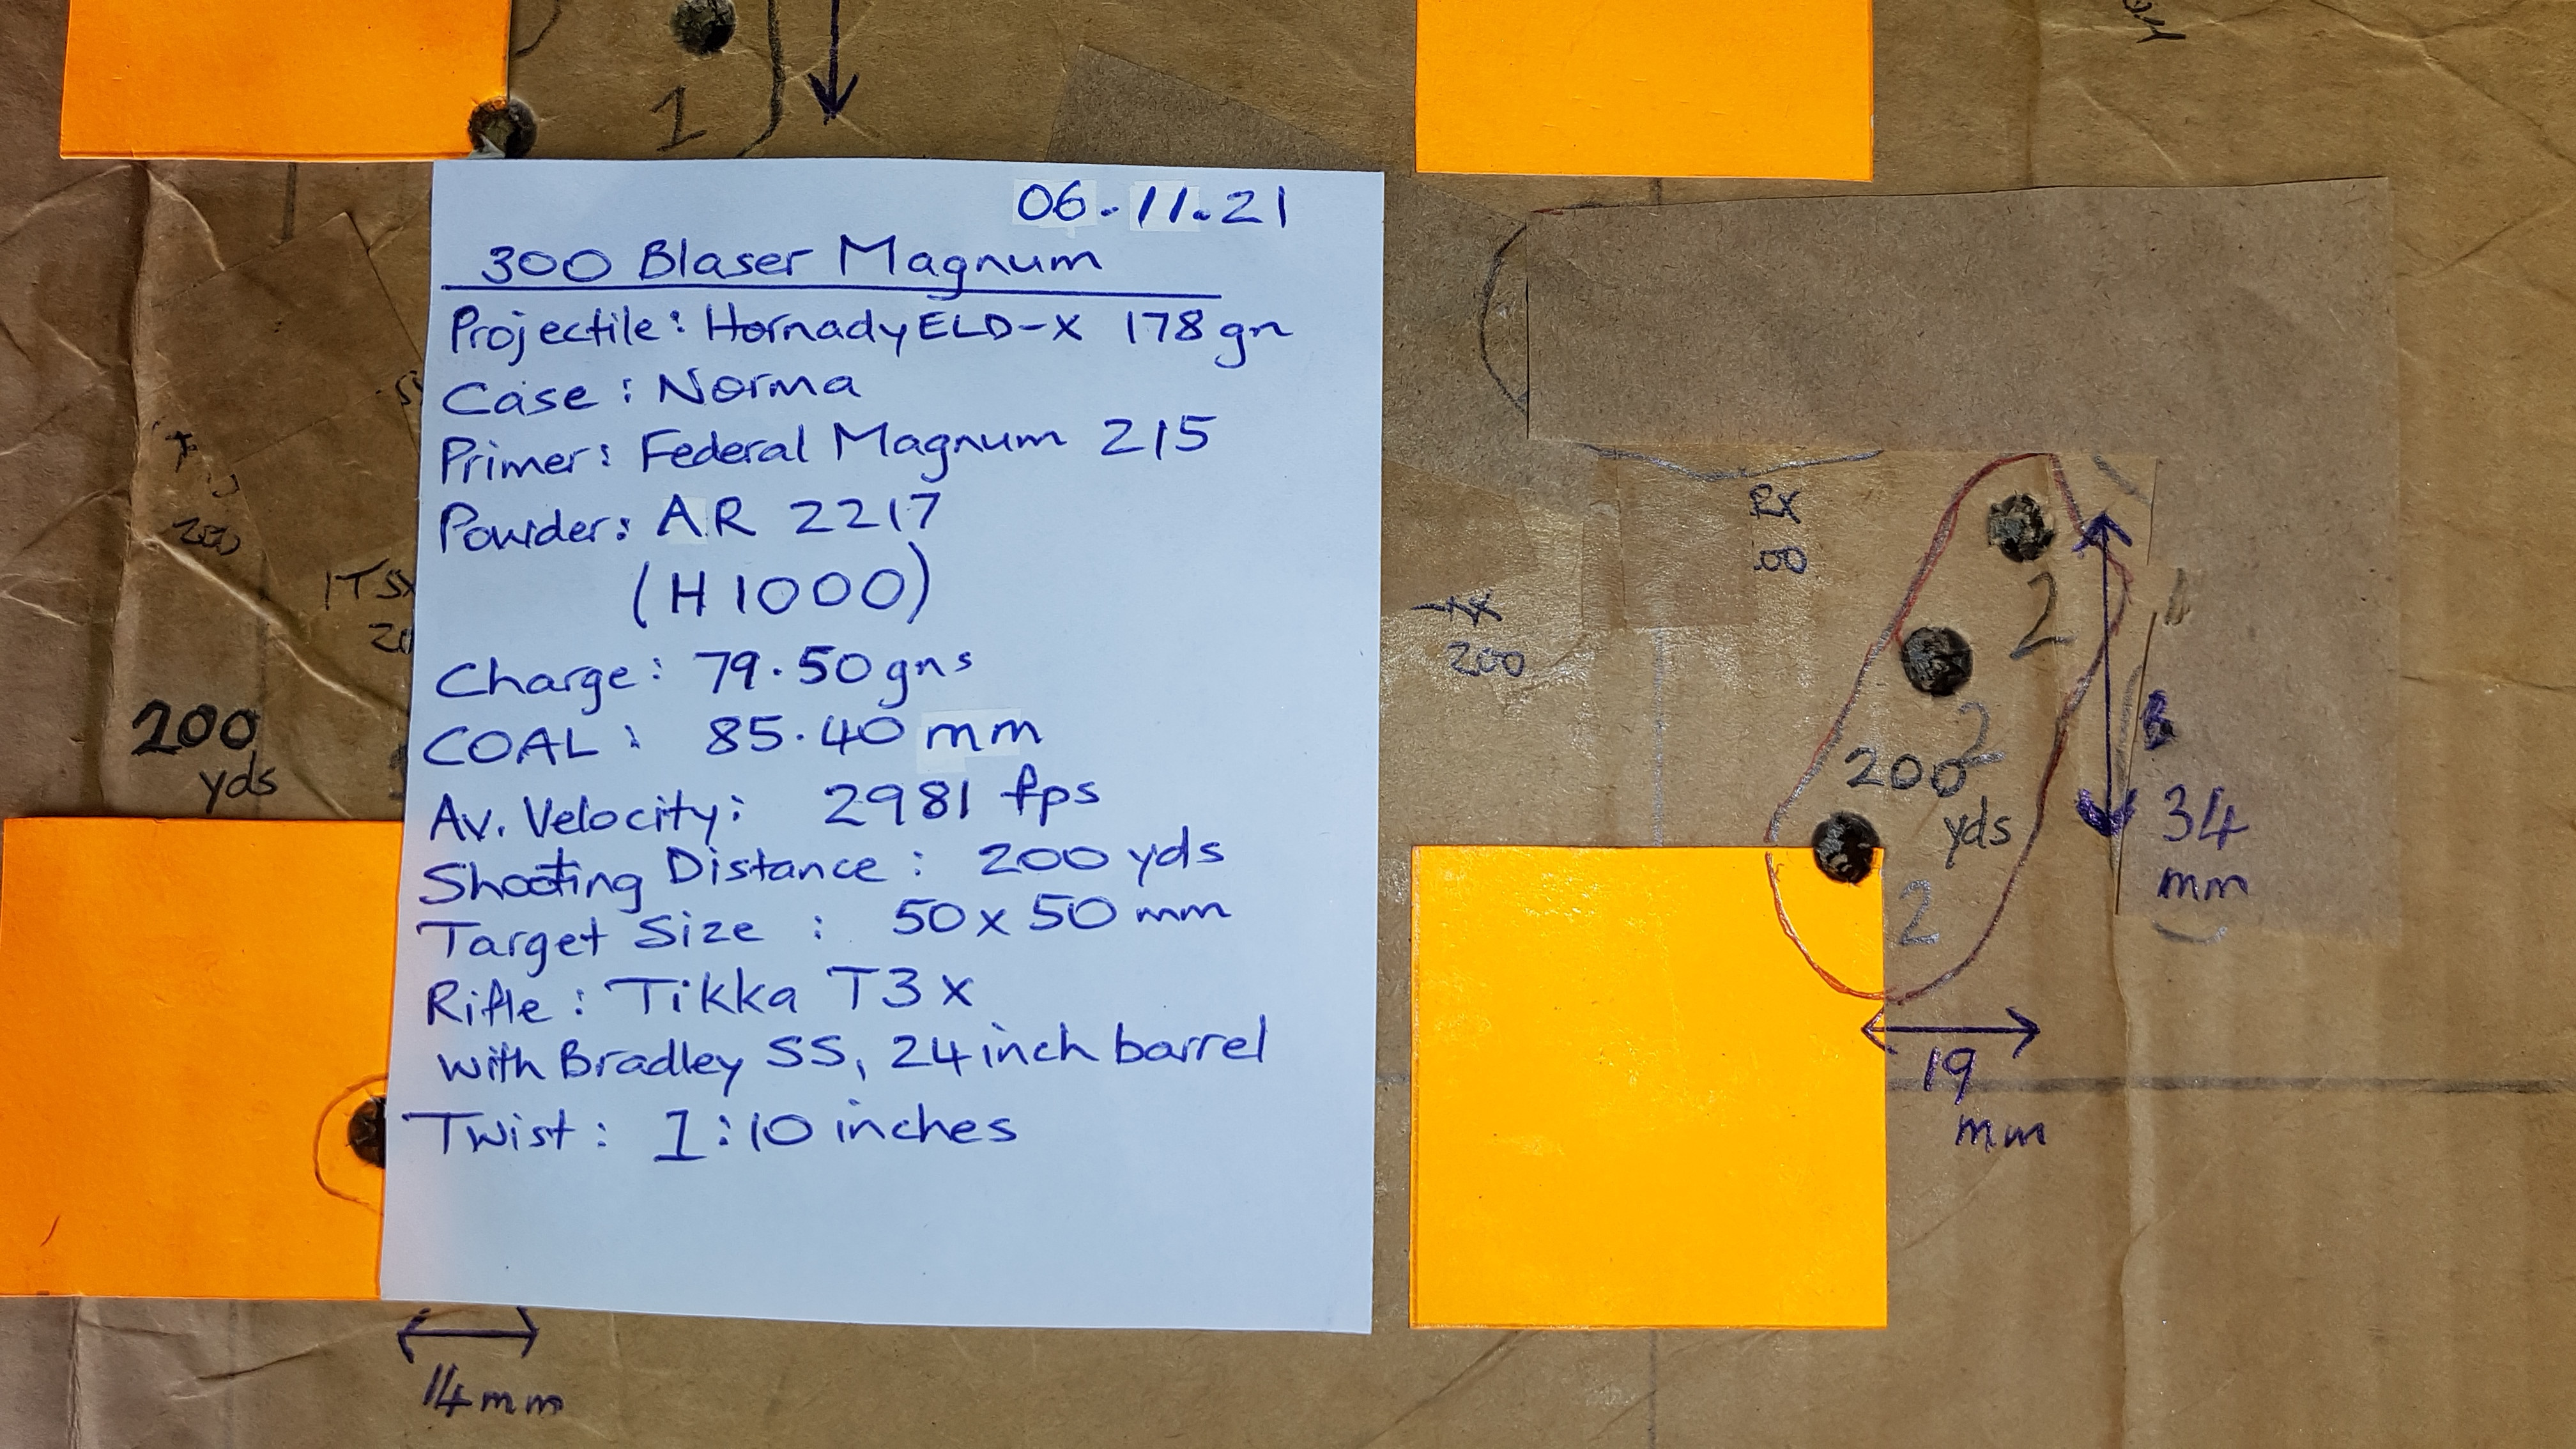 1
06.11.21
300 Blaser Magnum
Projectile: Hornady ELD-X 178 gn
Case: Norma
Primer: Federal Magnum 215
Powder: AR 2217
(H1000)
Charge: 79.50 gns
COAL: 85.40 mm
Av. Velocity: 2981 fps
Shooting Distance: 200 yds
Target Size: 50 x 50 mm
Rifle: Tikka T3x
with Bradley SS, 24 inch barrel
Twist: 1:10 inches
200
200
yds
14mm
200
2
2
200
yds
2
34
mm
19
mm